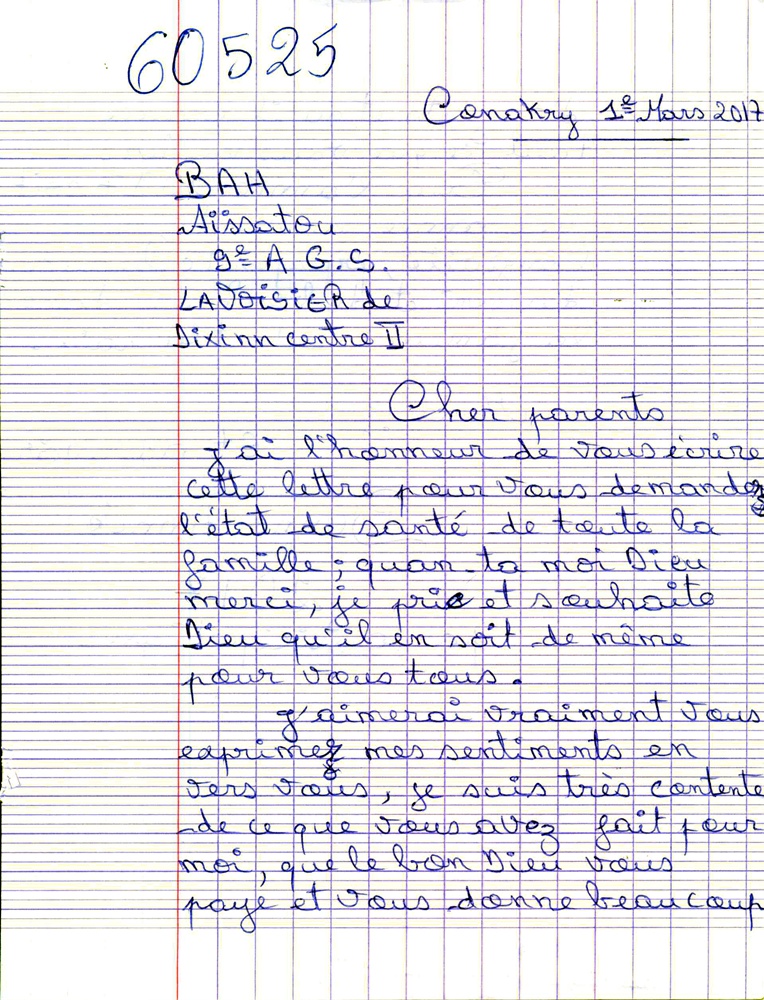 60525
Conakry 1e Mars 2017
BAH
Aïssatou
9e A G.S.
LAVOISIER de
Dixinn centre II
Cher parents
j'ai l'honneur de vous écrire
cette lettre pour vous demandez
l'état de santé de toute la
famille ; quan ta moi Dieu
merci, je prie et souhaite
Dieu qu'il en soit de même
pour vous tous.
j'aimerai vraiment vous
exprimez mes sentiments en
vers vous, je suis très contente
de ce que vous avez fait pour
moi, que le bon Dieu vous
paye et vous donne beaucoup